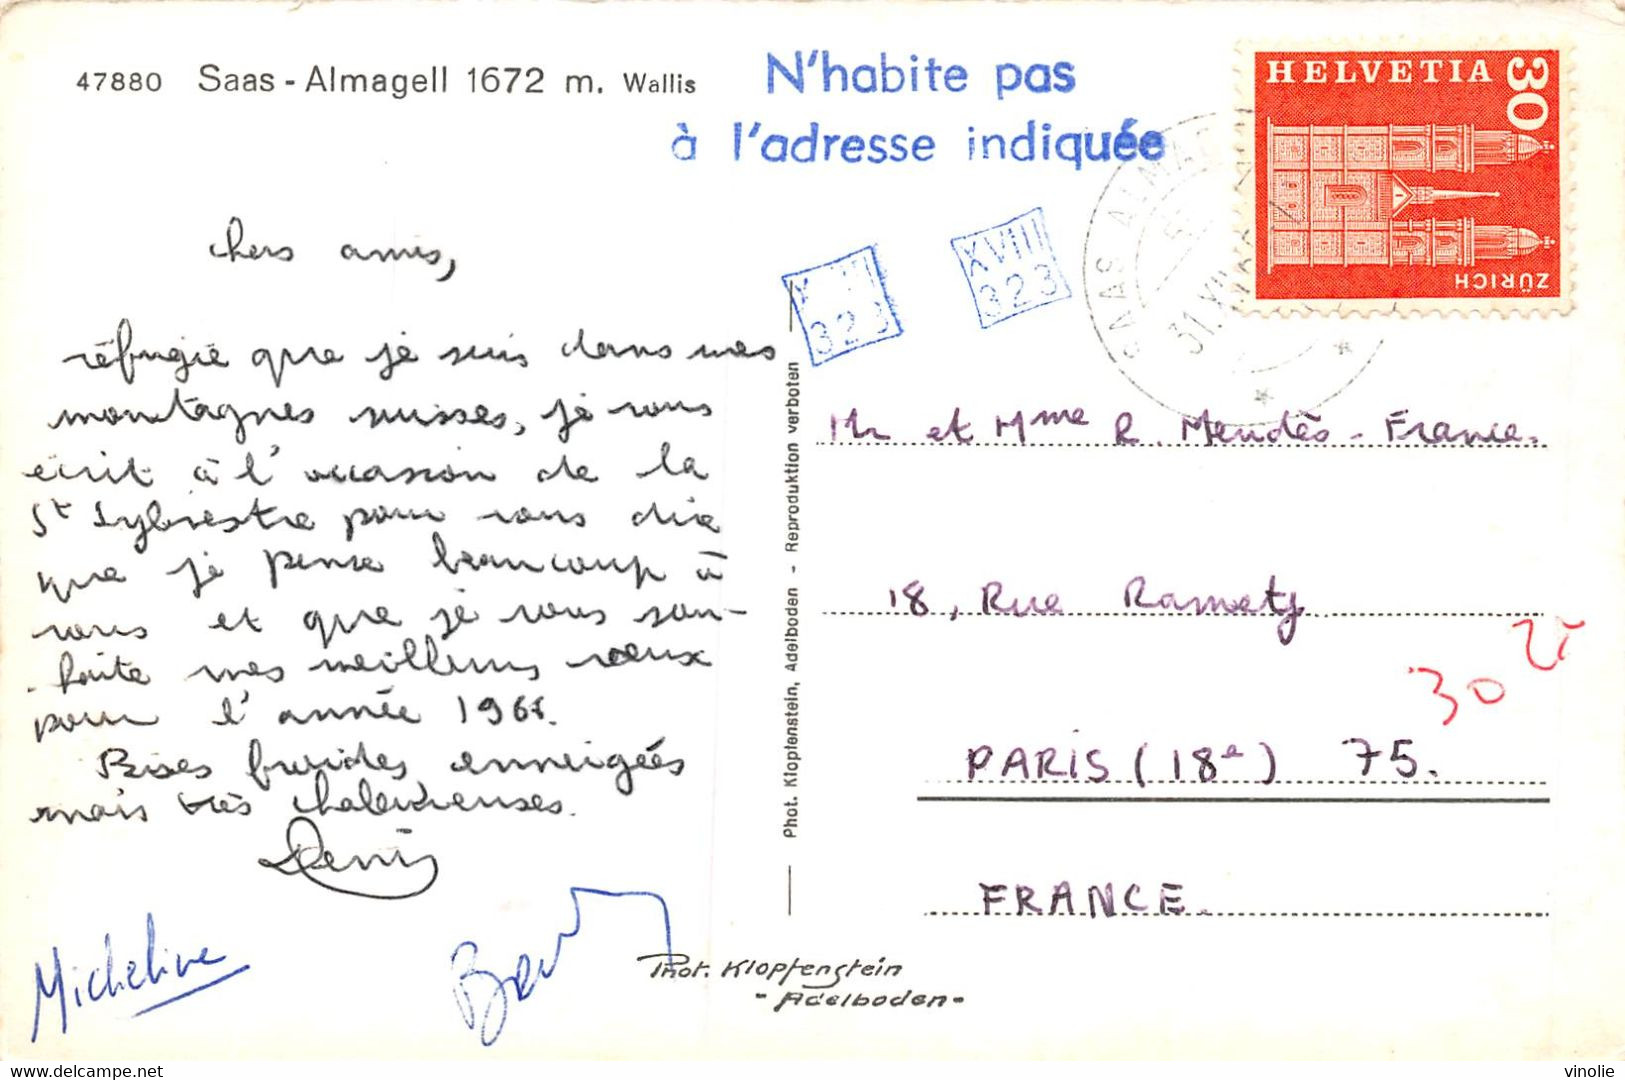 47880 Saas - Almagell 1672 m. Wallis
N'habite pas
à l'adresse indiquée
HELVETIA 30
ZÜRICH
SAAS ALMAGELL
31.XII
XVIII
323
XVIII
323
Chers amis,
réfugié que je suis dans mes
montagnes suisses, je vous
écrit à l'occasion de la
St Sylvestre pour vous dire
que je pense beaucoup à
vous et que je vous sou-
haite mes meilleurs voeux
pour l'année 196
Bises froides, enneigées
mais très chaleureuses.
Denis
Micheline
Phot. Klopfenstein, Adelboden - Reproduktion verboten
Mr et Mme R. Mendès-France.
18, Rue Ramety
PARIS (18e) 75.
FRANCE.
30
Phot. Klopfenstein
- Adelboden -
delcampe.net
vinolie